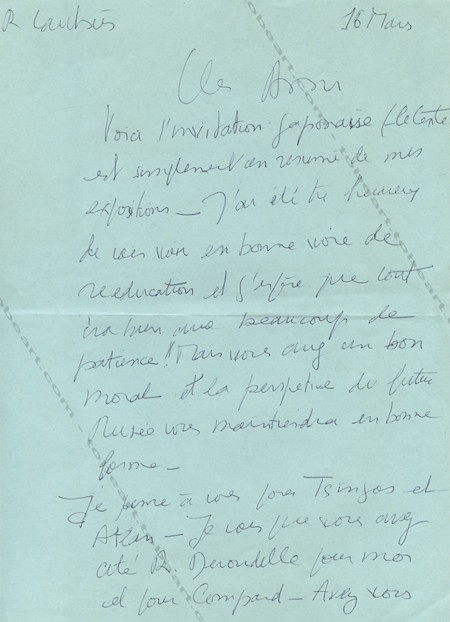 R Lanbiès 16 Mars
Cher Ami
Voici l'invitation japonaise (le texte
est simplement un résumé de mes
expositions — J'ai été très heureux
de vous voir en bonne voie de
rééducation et j'espère que tout
ira bien avec beaucoup de
patience! Mais vous avez un bon
moral et la perspective du futur
Musée vous maintiendra en bonne
forme —
Je pense à vous pour Tsingos et
Atlan — Je vois que vous avez
cité R. Deroudille pour moi
et pour Compard — Avez vous